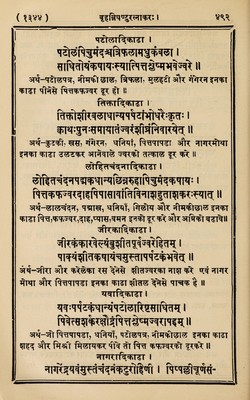 (१३४४) बृहन्निघण्टुरत्नाकरः। ४९२
पटोलादिकाढा।
पटोलपिचुमंदश्चत्रिफलामधुकंबला।
साधितोयंकषायःस्यात्पित्तश्लेष्मभवेज्वरे॥
अर्थ-पटोलपत्र, नीमकी छाल, त्रिफला, मुलहटी और गंगेरन इनका
काढा पीनेसे पित्तकफज्वर दूर हो॥
तिक्तादिकाढा।
तिक्तोशीरबलाधान्यपर्पटांभोधरैःकृतः।
क्वाथःपुनःसमायातंज्वरंशीघ्रंनिवारयेत्॥
अर्थ-कुटकी, खस, गंगेरन, धनियां, पित्तपापडा और नागरमोथा
इनका काढा उलटकर आनेवाले ज्वरको तत्काल दूर करे॥
लोहितचंदनादिकाढा।
लोहितचंदनपद्मकधान्यछिन्नरुहापिचुमंदकषायः।
पित्तकफज्वरदाहपिपासावांतिविनाशहुताशकरःस्यात्॥
अर्थ-लालचंदन, पद्माख, धनियां, गिलोय और नीमकीछाल इनका
काढा पित्त,कफ,ज्वर,दाह,प्यास,वमन इनको दूर करे और अग्निको बढावे॥
जीरकादिकाढा।
जीरकंकारवेल्यंबुशीतपूर्वज्वरेहितम्।
पाक्यंशीतकषायंचमुस्तापर्पटकंभवेत्॥
अर्थ-जीरा और करेलेका रस देनेसे शीतज्वरका नाश करे एवं नागर
मोथा और पित्तपापडा इनका काढा शीतल देनेसे पाचक है॥
यवादिकाढा।
यवःपर्पटकंधान्यंपटोलारिष्टसाधितम्।
पिबेत्सशर्करक्षौद्रंपित्तश्लेष्मज्वरापहम्॥
अर्थ-जौ पित्तपापडा, धनियां, पटोलपत्र और नीमकीछाल इनका काढा
शहद और मिश्री मिलायकर पीवे तो पित्त कफज्वरको दूरकरे॥
नागरादिकाढा।
नागरेंद्रयवंमुस्तंचंदनंकटुरोहिणी। पिप्पलीचूर्णसं-